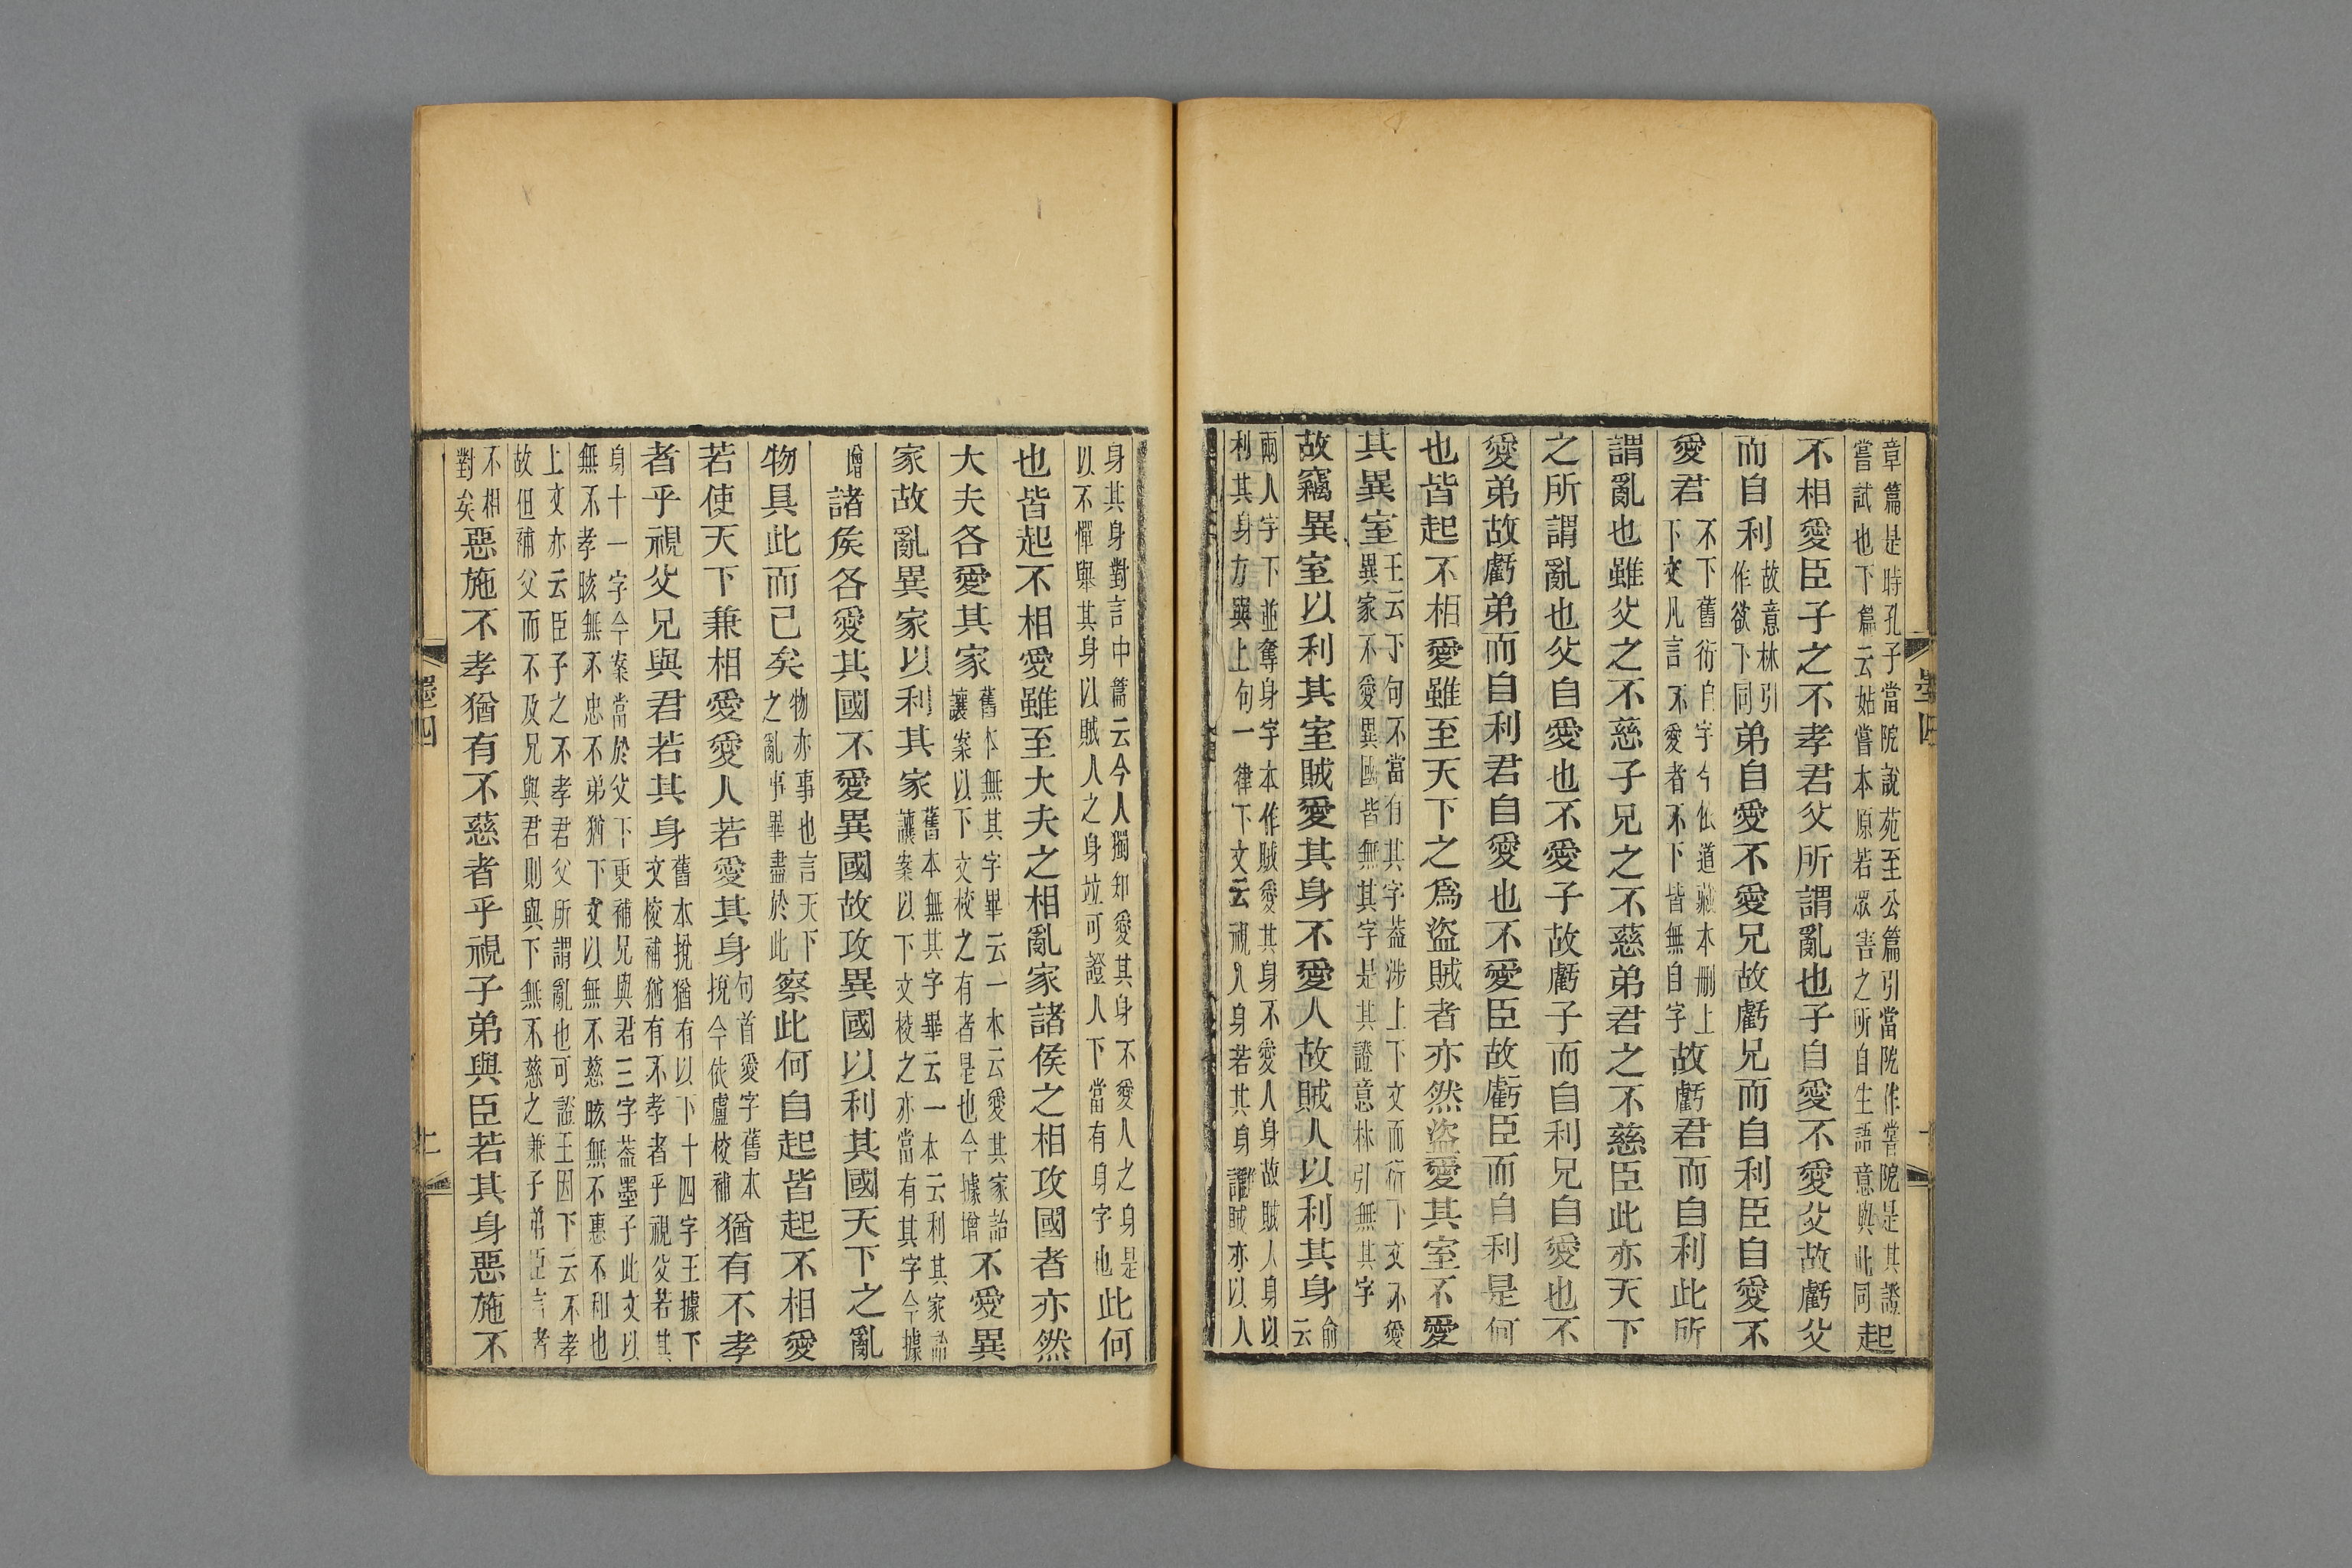 章篇是時孔子當阨說苑至公篇引當阨作嘗阨是其證
嘗試也下篇云姑嘗本原若眾害之所自生語意與此同
起
不相愛臣子之不孝君父所謂亂也子自愛不愛父故虧父
而自利
故意林引
作欲下同
弟自愛不愛兄故虧兄而自利臣自愛不
愛君
不下舊衍自字今依道藏本刪上
下文凡言不愛者不下皆無自字
故虧君而自利此所
謂亂也雖父之不慈子兄之不慈弟君之不慈臣此亦天下
之所謂亂也父自愛也不愛子故虧子而自利兄自愛也不
愛弟故虧弟而自利君自愛也不愛臣故虧臣而自利是何
也皆起不相愛雖至天下之爲盜賊者亦然盜愛其室不愛
其異室
王云下句不當有其字葢涉上下文而衍下文不愛
異家不愛異國皆無其字是其證意林引無其字
故竊異室以利其室賊愛其身不愛人故賊人以利其身
俞
云
兩人字下並奪身字本作賊愛其身不愛人身故賊人身以
利其身方與上句一律下文云視人身若其身誰賊亦以人
墨四
身其身對言中篇云今人獨知愛其身不愛人之身是
以不憚舉其身以賊人之身竝可證人下當有身字也
此何
也皆起不相愛雖至大夫之相亂家諸侯之相攻國者亦然
大夫各愛其家
舊本無其字畢云一本云愛其家詒
讓案以下文校之有者是也今據增
不愛異
家故亂異家以利其家
舊本無其字畢云一本云利其家詒
讓案以下文校之亦當有其字今據
增
諸矦各愛其國不愛異國故攻異國以利其國天下之亂
物具此而已矣
物亦事也言天下
之亂事畢盡於此
察此何自起皆起不相愛
若使天下兼相愛愛人若愛其身
句首愛字舊本
捝今依盧校補
猶有不孝
者乎視父兄與君若其身
舊本捝猶有以下十四字王據下
文校補猶有不孝者乎視父若其
身十一字今案當於父下更補兄與君三字葢墨子此文以
無不孝晐無不忠不弟猶下文以無不慈晐無不惠不和也
上文亦云臣子之不孝君父所謂亂也可證王因下云不孝
故但補父而不及兄與君則與下無不慈之兼子弟臣言者
不相
對矣
惡施不孝猶有不慈者乎視子弟與臣若其身惡施不
墨四